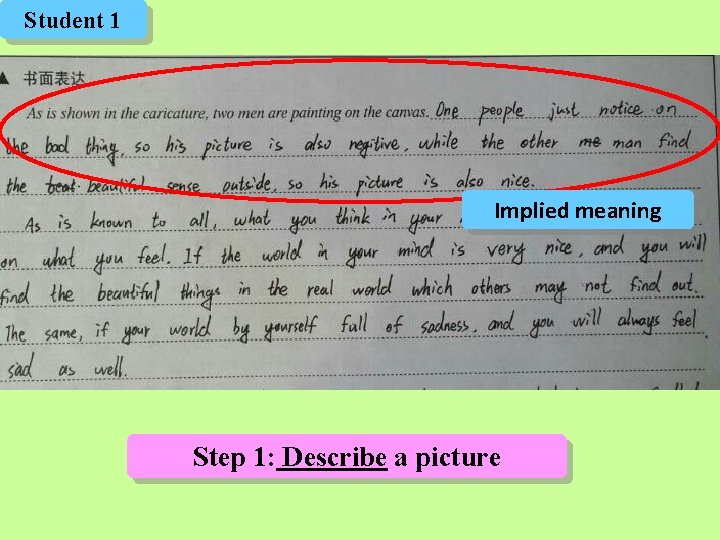 Student 1
▲ 书面表达
As is shown in the caricature, two men are painting on the canvas. One people just notice on
the bad thing, so his picture is also negitive, while the other me man find
the beat beautiful sense outside, so his picture is also nice.
Implied meaning
As is known to all, what you think in your
on what you feel. If the world in your mind is very nice, and you will
find the beautiful things in the real world which others may not find out.
The same, if your world by yourself full of sadness, and you will always feel
sad as well.
Step 1: Describe a picture